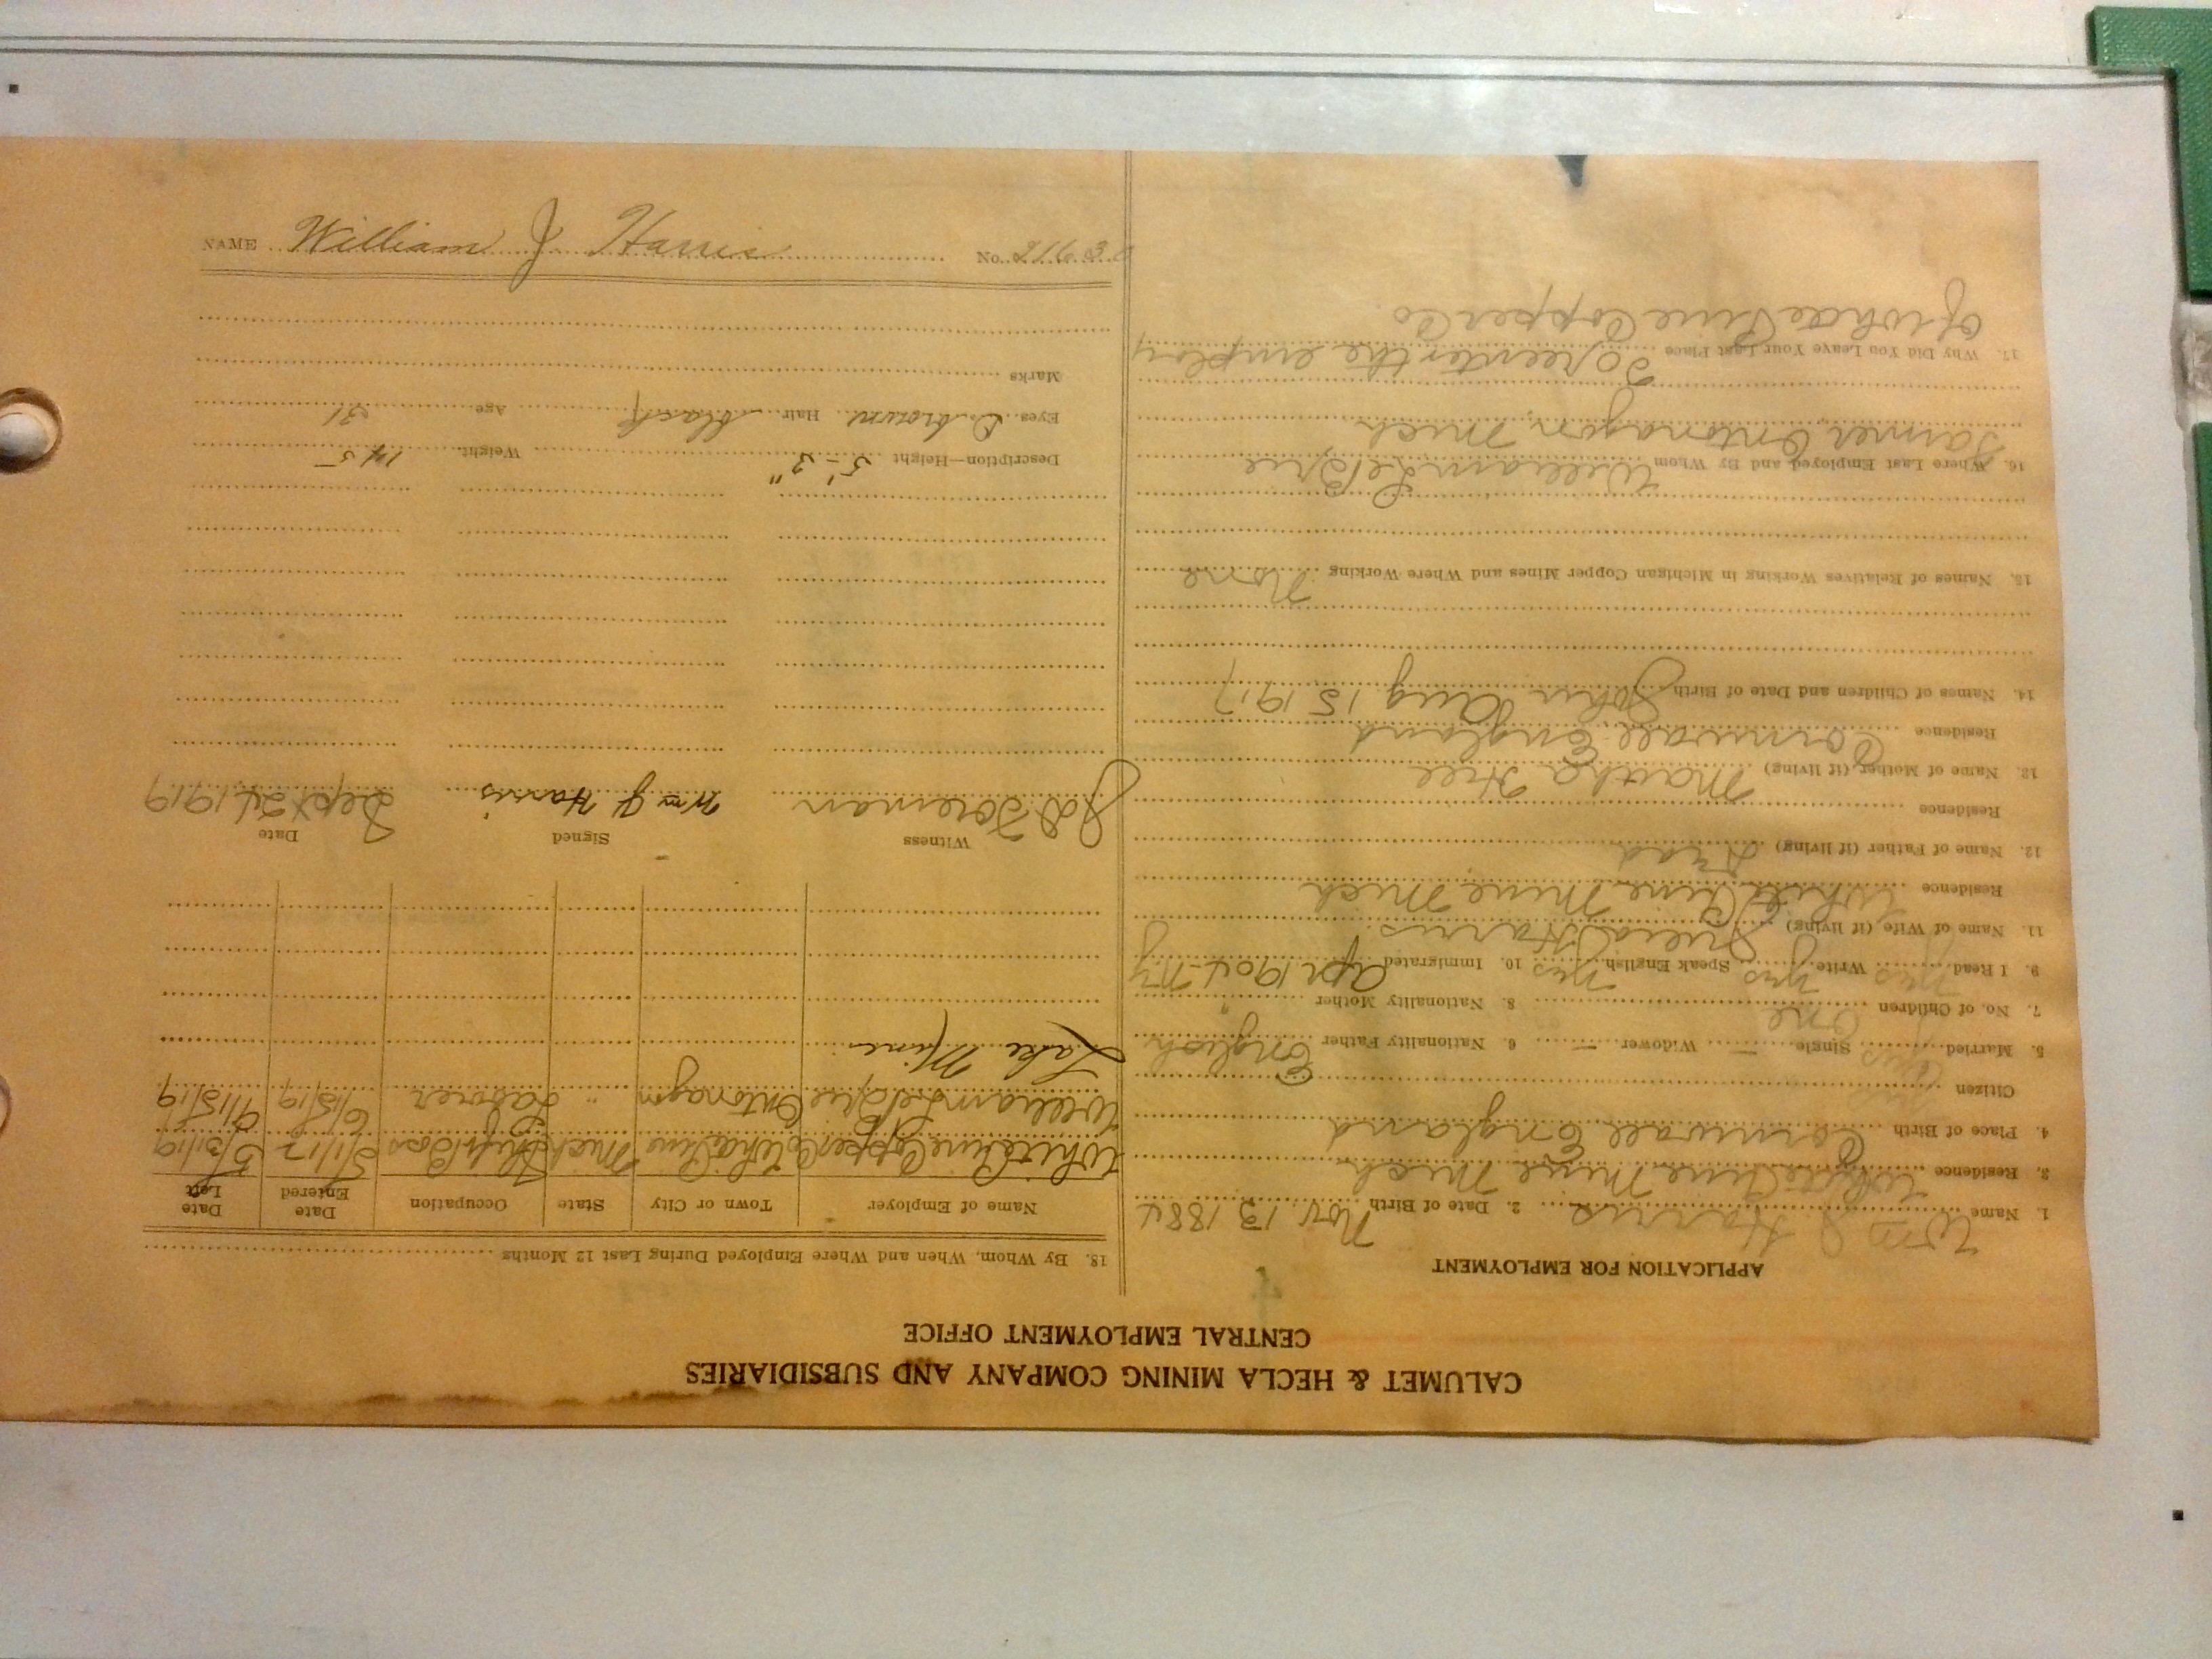 CALUMET & HECLA MINING COMPANY AND SUBSIDIARIES
CENTRAL EMPLOYMENT OFFICE
APPLICATION FOR EMPLOYMENT
1. Name Wm J Harris 2. Date of Birth Nov. 13 1884
3. Residence White Pine Mine Mich
4. Place of Birth Cornwall England
Citizen
5. Married Yes Single — Widower — 6. Nationality Father English
7. No. of Children One 8. Nationality Mother "
9. I Read Yes Write Yes Speak English Yes 10. Immigrated Apr 1904 - NY
11. Name of Wife (if living) Julia Harris
Residence White Pine Mine Mich
12. Name of Father (if living) Dead
Residence
13. Name of Mother (if living) Martha Hill
Residence Cornwall England
14. Names of Children and Date of Birth John Aug 15 1917
15. Names of Relatives Working in Michigan Copper Mines and Where Working None
16. Where Last Employed and By Whom William
Farmer Ontonagon, Mich
17. Why Did You Leave Your Last Place To reenter the employ
of White Pine Copper Co
18. By Whom, When and Where Employed During Last 12 Months
Name of Employer Town or City State Occupation Date Entered Date Left
White Pine Copper Co White Pine Mich Shift Boss 5/1/17 5/31/19
William Ontonagon " Laborer 6/15/19 9/15/19
Lake Mine
Witness Signed Date
Foreman Wm J Harris Sept 24 1919
Description—Height 5'-3" Weight 145
Eyes D. brown Hair black Age 31
Marks
NAME William J Harris No. 21630